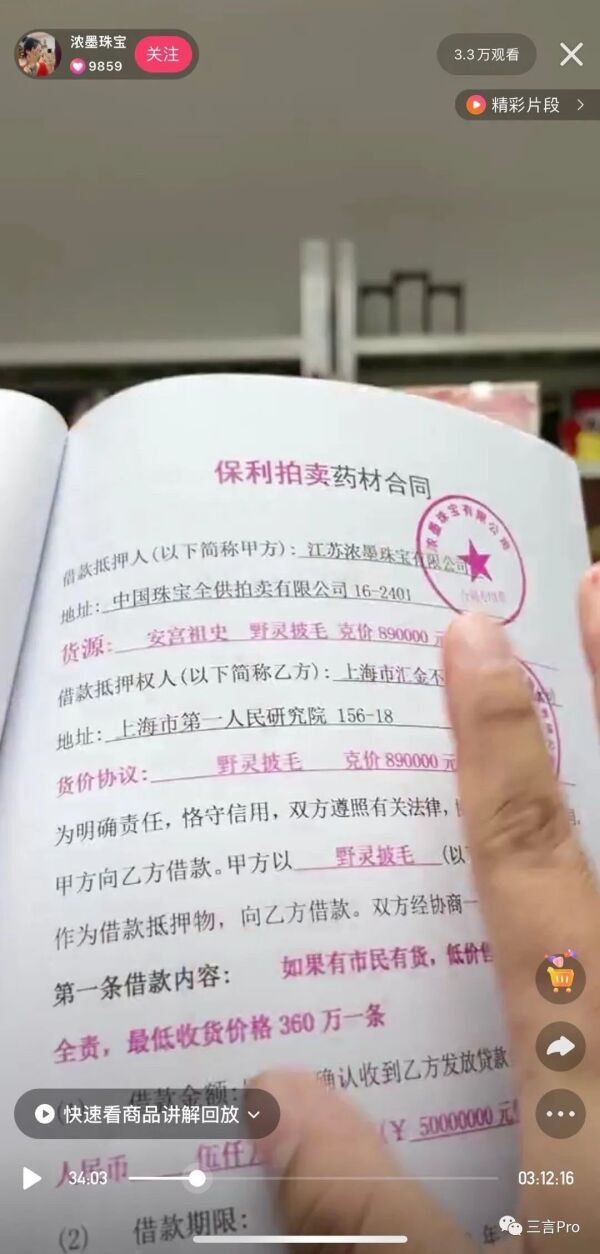 浓墨珠宝
9859
关注
3.3万观看
精彩片段
保利拍卖药材合同
借款抵押人(以下简称甲方): 江苏浓墨珠宝有限公司
浓墨珠宝有限公司
地址: 中国珠宝全供拍卖有限公司 16-2401
货源: 安宫祖史 野灵披毛 克价 890000 元
借款抵押权人(以下简称乙方): 上海市汇金不
地址: 上海市第一人民研究院 156-18
货价协议: 野灵披毛 克价 890000 元
为明确责任，恪守信用，双方遵照有关法律，
甲方向乙方借款。甲方以 野灵披毛 (以
作为借款抵押物，向乙方借款。双方经协商一
第一条借款内容: 如果有市民有货，低价
全责，最低收货价格 360 万一条
借款金额: 确认收到乙方发放贷款
快速看商品讲解回放
人民币 伍仟万 (¥ 50000000 元
34:03
03:12:16
(2) 借款期限: 年
三言Pro